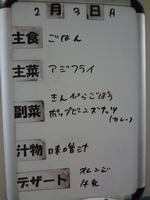 2月3日A
主食 ごはん
主菜 アジフライ
副菜 きんぴらごぼう
ポップビーンズナッツ
(カレー)
汁物 味噌汁
デザート オレンジ
牛乳